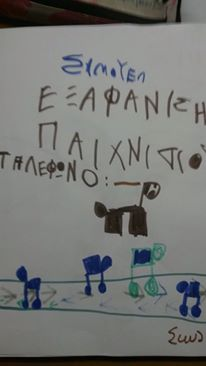 ΣΑΜΟΥΕΛ
ΕΞΑΦΑΝΙΣΗ
ΠΑΙΧΝΙΔΙΟΥ
ΤΗΛΕΦΩΝΟ: —